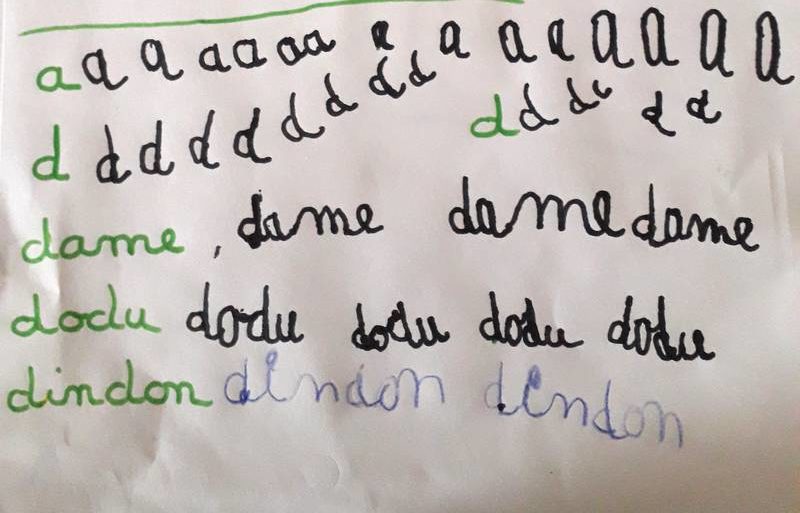 a a a a a a a a a a a a a a a a
d d d d d d d d d d d d d d d d
dame, dame dame dame
dodu dodu dodu dodu dodu
dindon dindon dindon